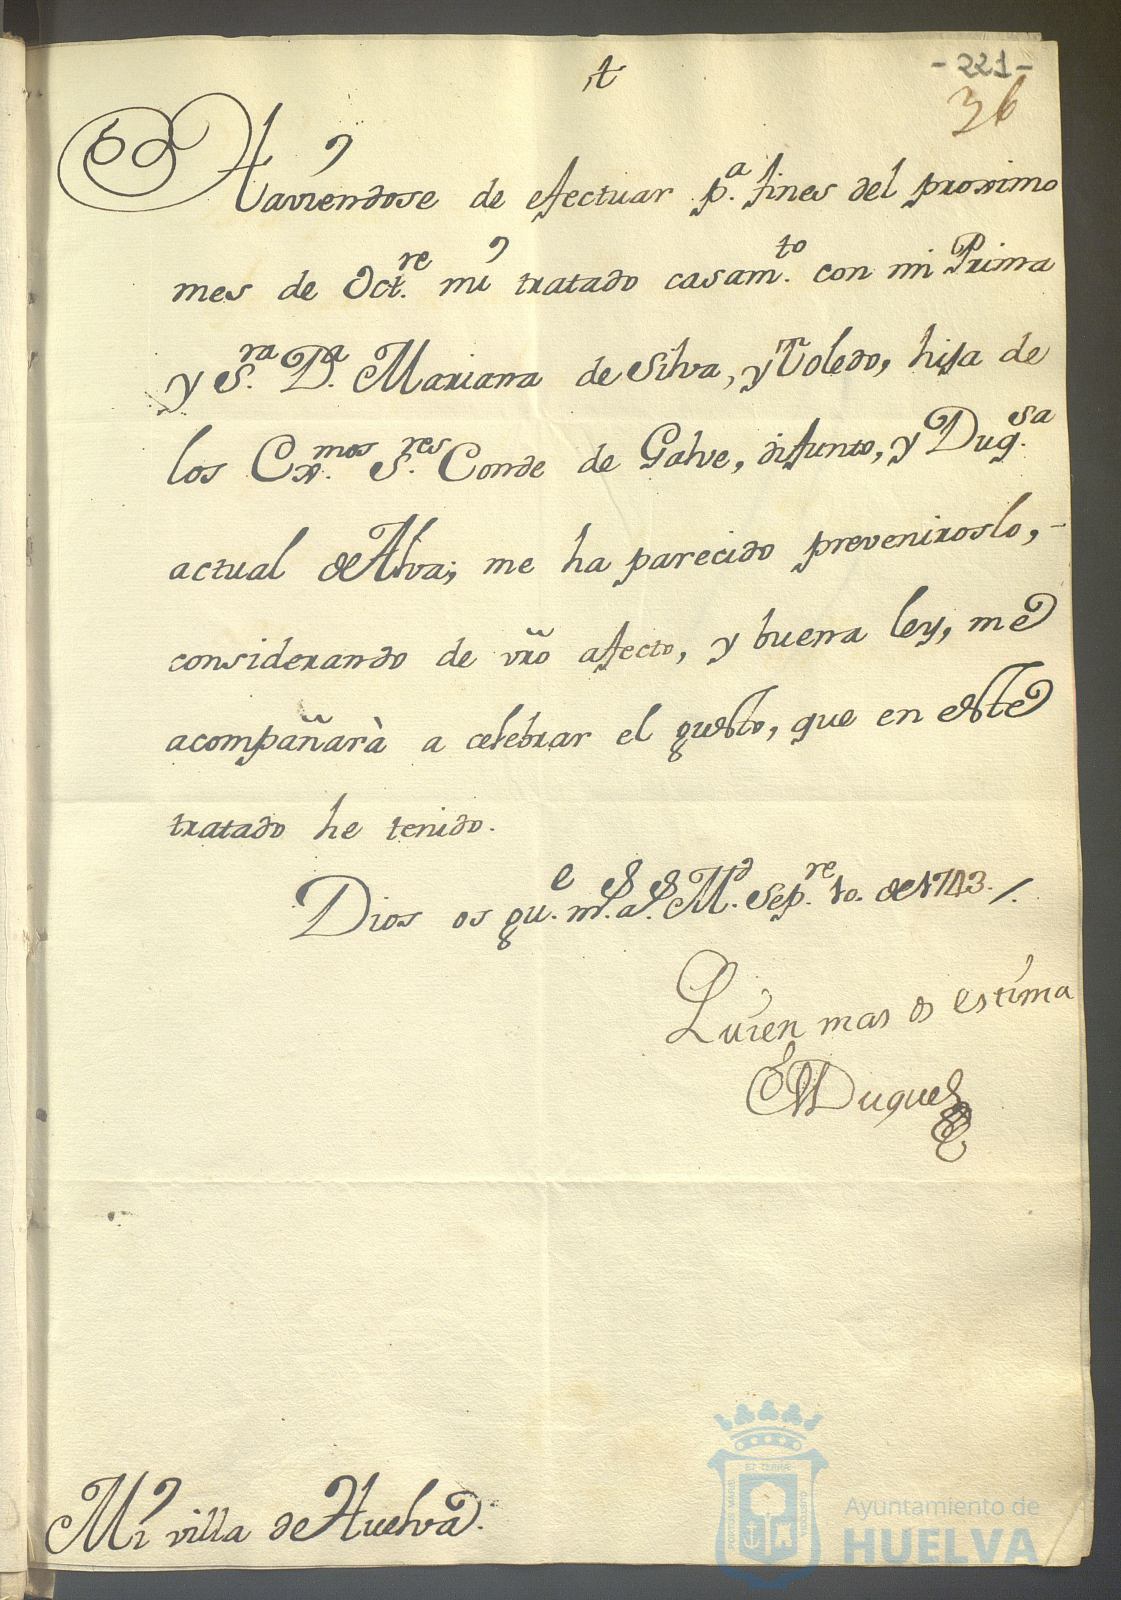 †
-221-
36
Haviendose de efectuar p.ª fines del proximo
mes de Oct.re mi tratado casam.to con mi Prima
y S.ra D.ª Mariana de Silva, y Toledo, hija de
los Ex.mos S.res Conde de Galve, difunto, y Duq.sa
actual de Alva; me ha parecido preveniroslo,-
considerando de vrõ afecto, y buena ley, me
acompañarà a celebrar el gusto, que en este
tratado he tenido.
Dios os gu.e m.s a.s M.d Sep.re 10. de 1743.
Quien mas os estima
El Duque
Mi villa de Huelva.
Ayuntamiento de
HUELVA